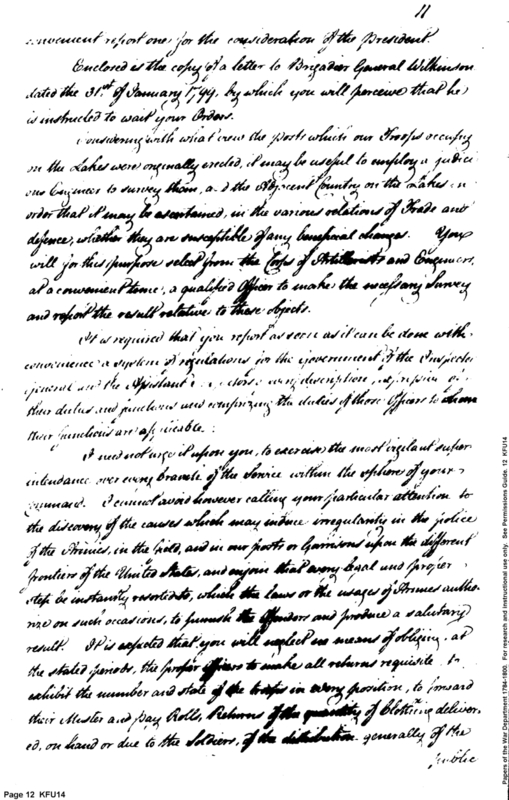 11
convenient report ones for the consideration of the President.
Enclosed is the copy of a letter to Brigadier General Wilkinson
dated the 31st of January 1799, by which you will perceive that he
is instructed to wait your Orders.
Considering with what view the posts which our Troops occupy
on the Lakes were originally erected, it may be useful to employ a judici
ous Engineer to survey them, and the Adjacent Country on the Lakes in
order that it may be ascertained, in the various relations of Trade and
defence, whether they are susceptible of any beneficial changes. You
will for this purpose select from the Corps of Artillerists and Engineers,
at a convenient time, a qualified Officer to make the necessary Survey
and report the result relative to these objects.
It is required that you report as soon as it can be done with
convenience a system of regulations for the government of the Inspector
General and the Assistant description, expressive of
their duties and functions and comprizing the duties of those Officers to whom
their functions are applicable.
I need not urge it upon you, to exercise the most vigilant super
intendance over every branch of the Service within the sphere of your
command. I cannot avoid however calling your particular attention to
the discovery of the causes which may induce irregularity in the police
of the Armies, in the field, and in our posts or Garrisons upon the different
frontiers of the United States, and enjoin that every legal and proper
step be instantly resorted to, which the laws or the usages of Armies autho
rize on such occasions, to punish the Offenders and produce a salutary
result. It is expected that you will neglect no means of obliging, at
the stated periods, the proper officers to make all returns requisite to
exhibit the number and state of the troops in every position, to forward
their Muster and Pay Rolls, Returns of the quantity of Clothing deliver
ed, on hand or due to the Soldiers, of the distribution generally of the
public
Page 12 KFU14
Papers of the War Department 1784-1800. For research and instructional use only. See Permissions Guide. 12 KFU14